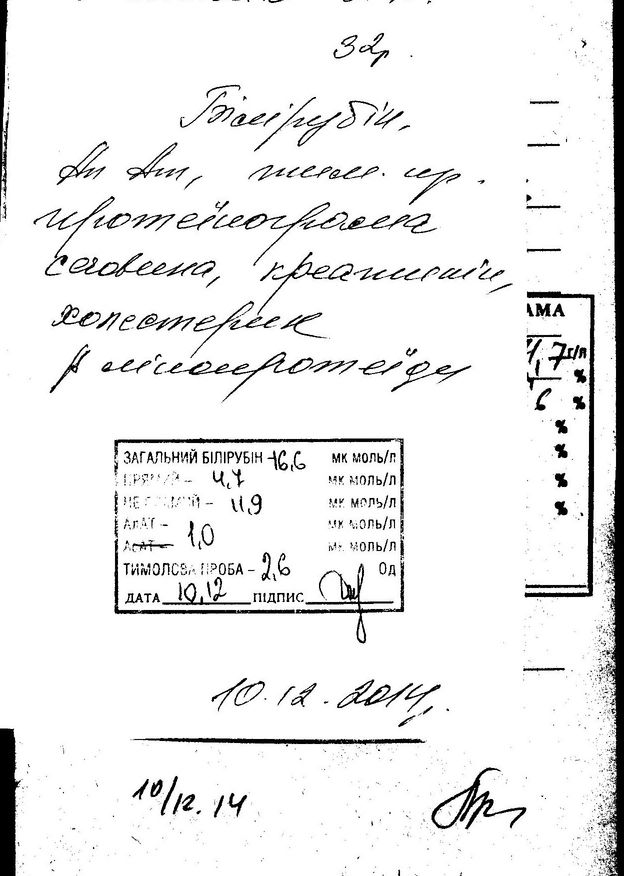 32р.
Білірубін,
Ал Ат, тим. пр.
протеїнограма
сечовина, креатинін,
холестерин
β ліпопротеїди
АМА
,7 г/л
6 %
%
%
%
%
%
ЗАГАЛЬНИЙ БІЛІРУБІН - 16,6 мк моль/л
ПРЯМИЙ - 4,7 мк моль/л
НЕ ПРЯМИЙ - 11,9 мк моль/л
АлАТ - 1,0 мк моль/л
АсАТ - мк моль/л
ТИМОЛОВА ПРОБА - 2,6 Од
ДАТА 10,12 ПІДПИС
10.12.2014р.
10/12.14